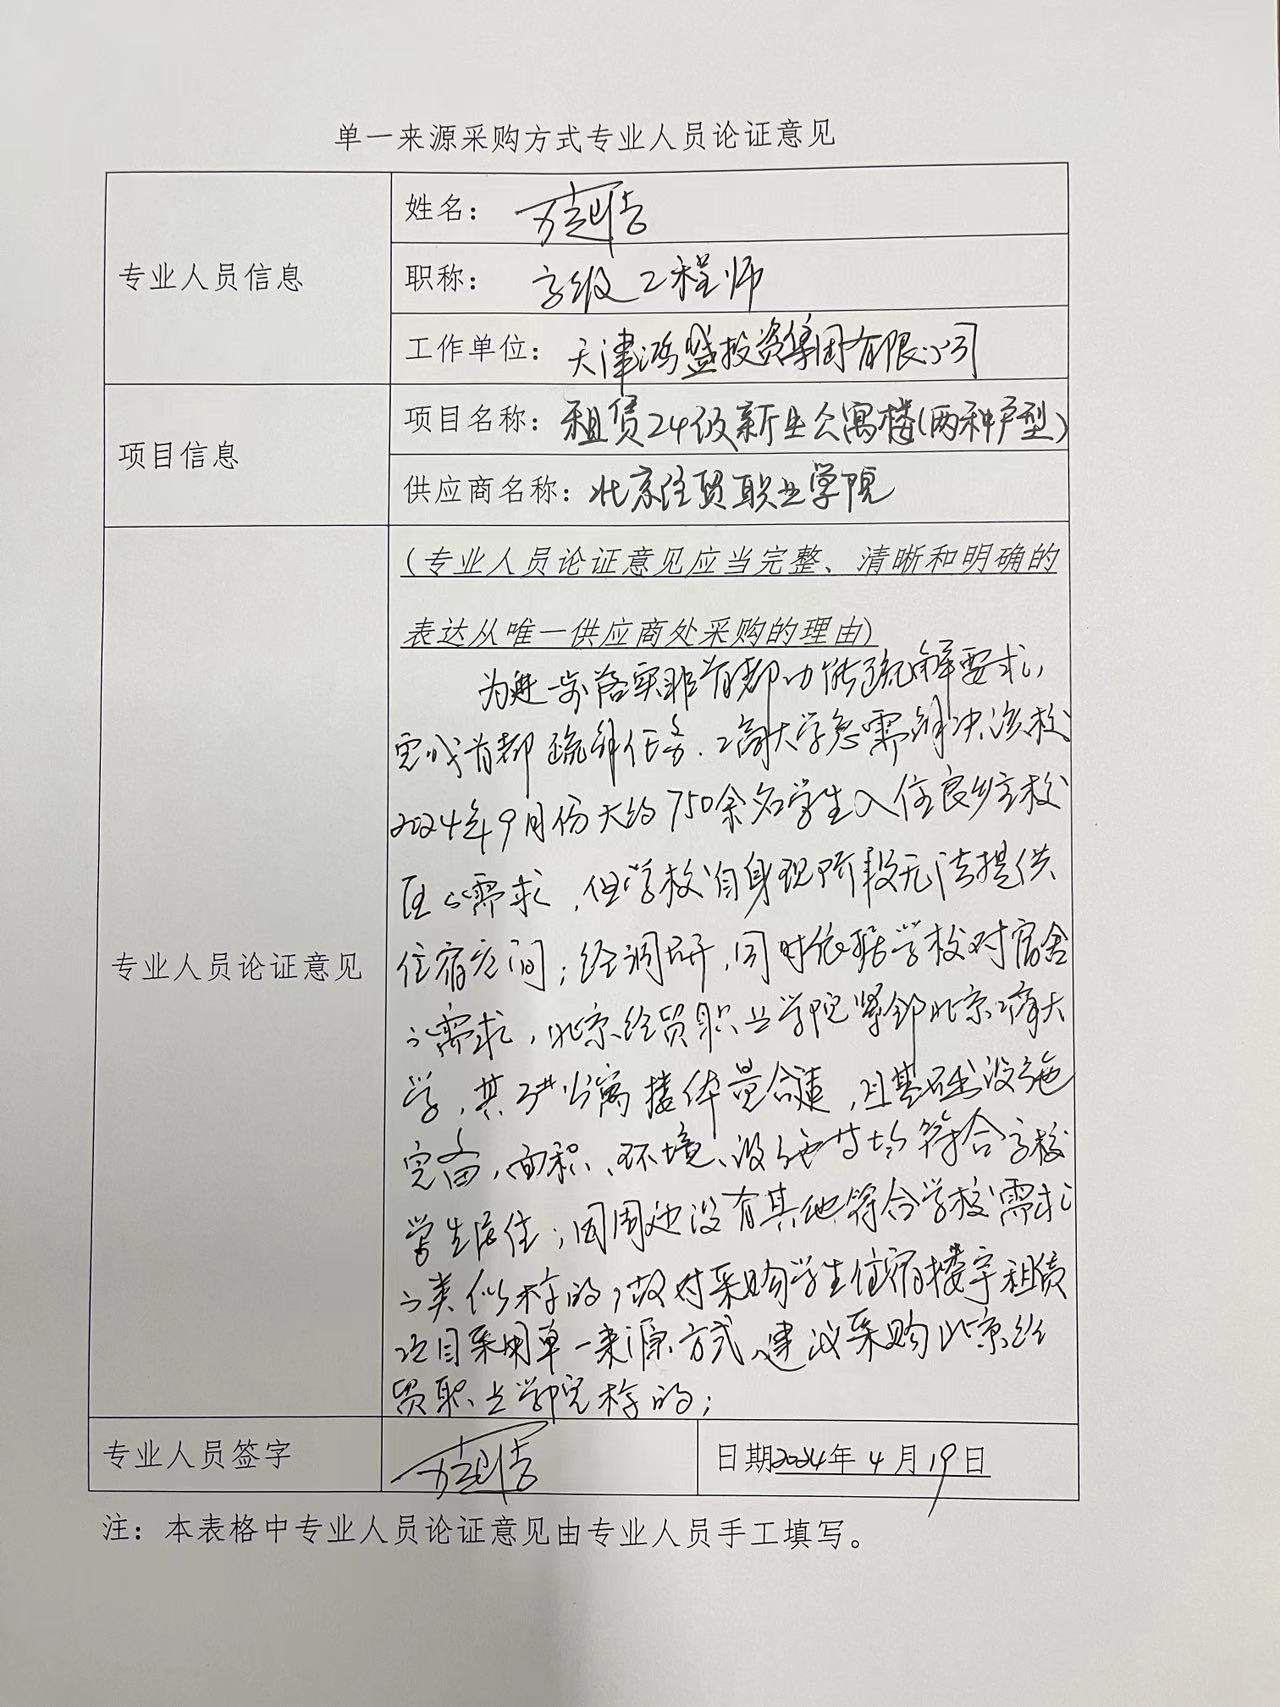 单一来源采购方式专业人员论证意见
专业人员信息
姓名：
职称： 高级工程师
工作单位：天津鸿盛投资集团有限公司
项目信息
项目名称：租赁24级新生公寓楼(两种户型)
供应商名称：北京经贸职业学院
专业人员论证意见
(专业人员论证意见应当完整、清晰和明确的
表达从唯一供应商处采购的理由)
为进一步落实非首都功能疏解要求，
完成首都疏解任务．工商大学急需解决该校
2024年9月份大约750余名学生入住良乡主校
区的需求，但学校自身现阶段无法提供
住宿房间；经调研，同时依据学校对宿舍
的需求，北京经贸职业学院紧邻北京工商大
学，其3#公寓楼体量合适，且基础设施
完备，面积、环境、设施等均符合学校
学生居住；因周边没有其他符合学校需求
的类似标的，故对采购学生住宿楼宇租赁
项目采用单一来源方式，建议采购北京经
贸职业学院标的；
专业人员签字
日期2024年4月19日
注：本表格中专业人员论证意见由专业人员手工填写。